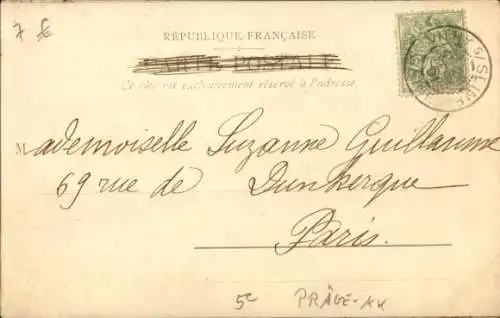 7 £
RÉPUBLIQUE FRANÇAISE
CARTE POSTALE
Ce côté est exclusivement réservé à l'adresse.
Mademoiselle Suzanne Guillaume
69 rue de Dunkerque
Paris.
5c PRÂGE-KK